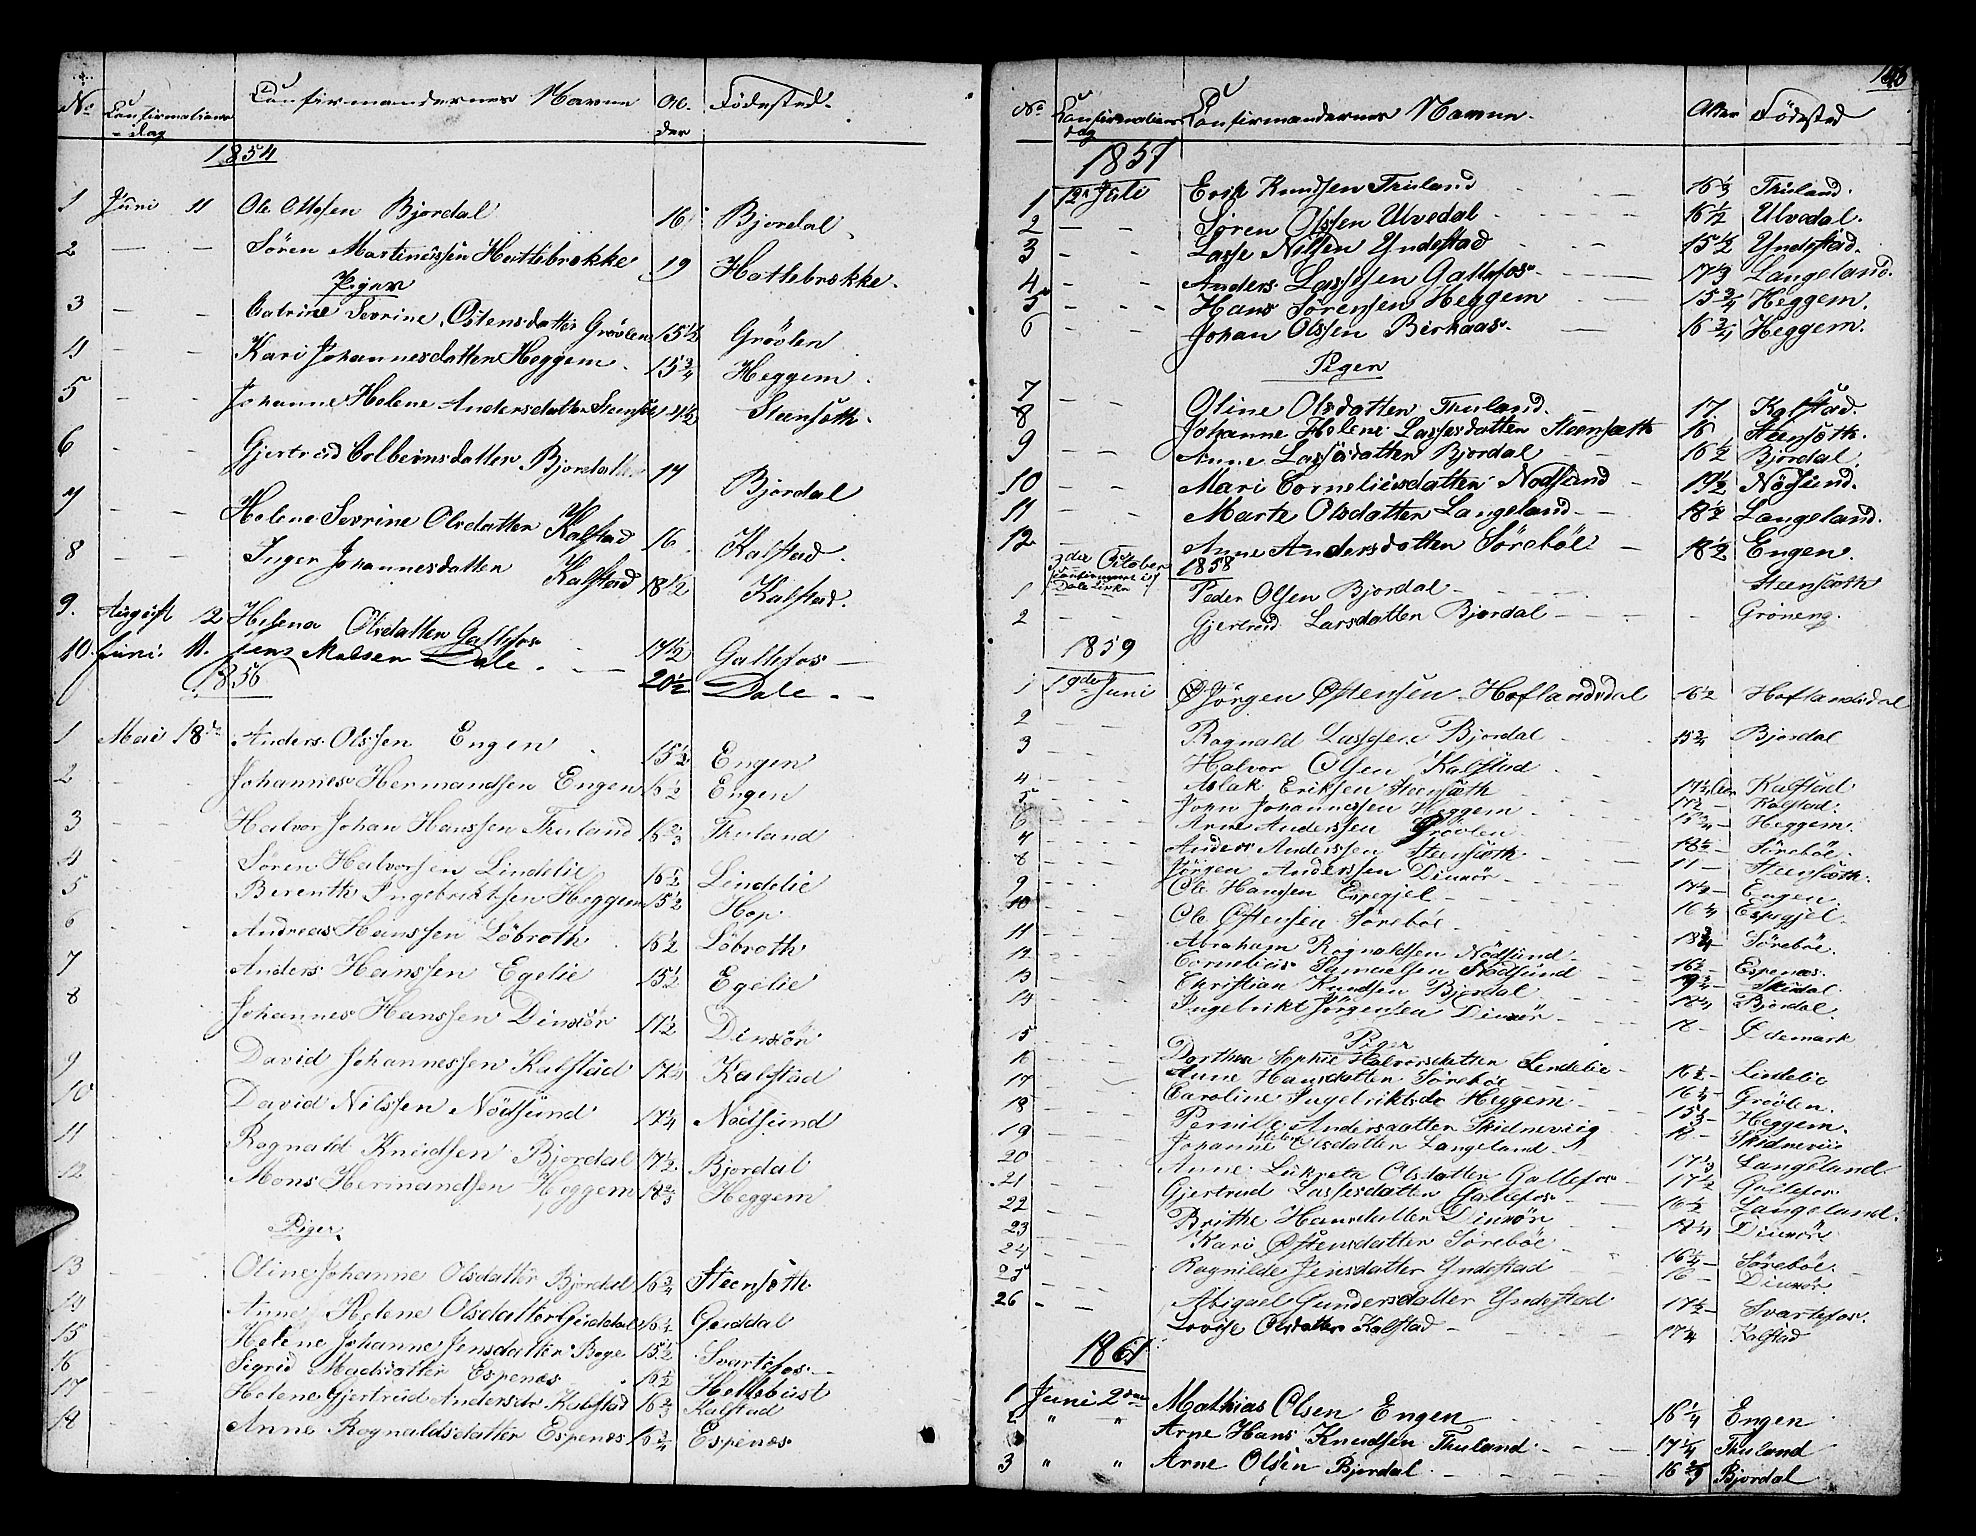 No Confirmations-dag Confirmandernes Navne Alder Födested.
1854
1 Juni 11 Ole Ottosen Bjordal 16 Bjordal.
2 — — Sören Martinussen Hattebrække 19 Hattebrække.
Piger
3 — — Catrine Sevrine Ostensdatter Gröolen 15 1/2 Gröolen
4 — — Kari Johannesdatter Heggem. 15 3/4 Heggem.
5 — — Johanne Helene Andersdatter Steensöth 14 1/2 Steensöth.
6 — — Gjertrud Colbeinsdatter Bjordal 17 Bjordal
7 — — Helene Sevrine Olsdatter Kalstad 16 Kalstad.
8 — — Inger Johannesdatter Kalstad 18 1/2 Kalstad.
9. August 2 Helena Olsdatter Gallefos 17 1/2 Gallefos —
10 Juni. 11. Jens Madsen Dale. — — 20 1/2 Dale. — —
1856
1 Mai 18de Anders Olssen Engen 15 1/2 Engen
2 — — Johannes Hermandsen Engen 16 1/2 Engen
3 — — Halvor Johan Hanssen Thuland 16 2/3 Thuland
4 Sören Halvorsen Lindelie 16 1/2 Lindelie
5 — — Berenth Ingebriktsen Heggem 15 1/2 Hop
6 — — Andreas Hanssen Löbroth 16 1/2 Löbroth
7 Anders Hanssen Egelie 15 1/2 Egelie
8 Johannes Hanssen Dinxör 17 1/2 Dinxör
9 David Johannessen Kalstad 17 1/4 Kalstad
10 David Nilssen Nödsund 17 1/4 Nödsund
11 Rognald Knudsen Bjordal 17 1/2. Bjordal
12 Mons Hermandsen Heggem 18 2/3 Heggem
Piger.
13 Oline Johanne Olsdatter Bjordal 16 3/4 Steensöth
14 Anne Helene Olsdatter Guddal 16 1/2 Guddal
15 Helene Johanne Jensdatter Boge 15 1/2 Svartefos —
16 Sigrid Madsdatter Espenæs 16 1/2 Hellebust
17 Helene Gjertrud Andersdr Kalstad 16 2/3 Kalstad
18 Anne Rognaldsdatter Espenæs 16 3/4 Espenæs
148
No Confirmations dag Confirmandernes Navne. Alder Födested
1857
1 12te Juli Erik Knudsen Thuland 16 1/3 Thuland.
2 — — Sören Olssen Ulvedal 16 1/2 Ulvedal.
3 — — Lasse Nilsen Yndestad 15 1/2 Yndestad.
4 — — Anders Lassesen Gallefos 17 1/3 Langeland.
5 — — Hans Sörensen Heggem 15 3/4 Heggem.
6 — — Johan Olssen Birkaas. 16 3/4 Heggem.
Piger
7 — — Oline Olsdatter Thuland. 17 Kalstad.
8 Johanne Helene Lassesdatter Steensæth 16 Steensöth.
9 — — Anne Lassesdatter Bjordal 16 1/2 Bjordal.
10 — — Mari Corneliusdatter Nodsund 19 1/2 Nösund.
11 — — Marte Olsdatter Langeland 18 1/2 Langeland.
12 — — Anne Andersdotter Söreböe 18 1/2 Engen.
3die October 1858
confirmeret i Dale Kirke
1 Peder Olsen Bjordal Steensæth
2 — — Gjertrud Larsdatter Bjordal Gröneng.
1859
1 19de Juni Jörgen Østensen Hoflandsdal 16 1/2 Hoflandsdal
2 Rognald Lassesen Bjordal 15 3/4 Bjordal
3 Halvor Olsen Kalstad 17 1/2 Kalstad
4 Aslak Eriksen Steensæth 17 1/2 Kalstad.
5 John Johannessen Heggem 15 3/4 Heggem.
6 Arne Anderssen Gröolen 18 1/2 Söreböe.
7 Anders Anderssen Steensæth 17 Steensæth.
8 Jörgen Anderssen Dinxör 17 1/2 Engen.
9 Ole Hanssen Espegjel 16 1/4 Espegjel.
10 Ole Østensen Söreböe 18 3/4 Söreböe.
11 Abraham Rognaldsen Nödsund 16 1/2 Espenæs.
12 Cornelius Samuelsen Nödsund 19 3/4 Skidal.
13 Christian Knudsen Bjordal 18 1/4 Bjordal.
14 Ingebrikt Jörgensen Dinxör 18 Ødemark
Piger
15 Dorthea Sophie Halvorsdatter Lindelie 16 1/2 Lindelie
16 Anne Hansdatter Söreböe 16 1/2 Gröolen.
17 Caroline Ingebriktsdr Heggem 15 1/2 Heggem.
18 Pernille Andersdatter Skidneviig 18 Skidneviig
19 Johanne Helene Olsdatter Langeland 17 1/3 Langeland
20 Anne Lukreta Olsdatter Gallefos 17 1/2 Gallefos
21 Gjertrud Lassesdatter Gallefos 16 1/2 Langeland.
22 Brithe Hansdatter Dinxör 18 1/4 Dinxör
23 Kari Østensdatter Söreböe 16 1/4 Söreböe.
24 Ragnilde Jensdatter Yndestad 16 Dinxör.
25 Abigael Gundersdatter Yndestad 17 1/2 Svartefos.
26 — — Lovise Olsdatter Kalstad 17 1/4 Kalstad
1861
1 Juni 2den Mathias Olsen Engen 16 1/4 Engen
2 " " Arne Hans Knudsen Thuland 17 1/4 Thuland
3 " " Arne Olsen Bjordal 16 2/3 Bjordal